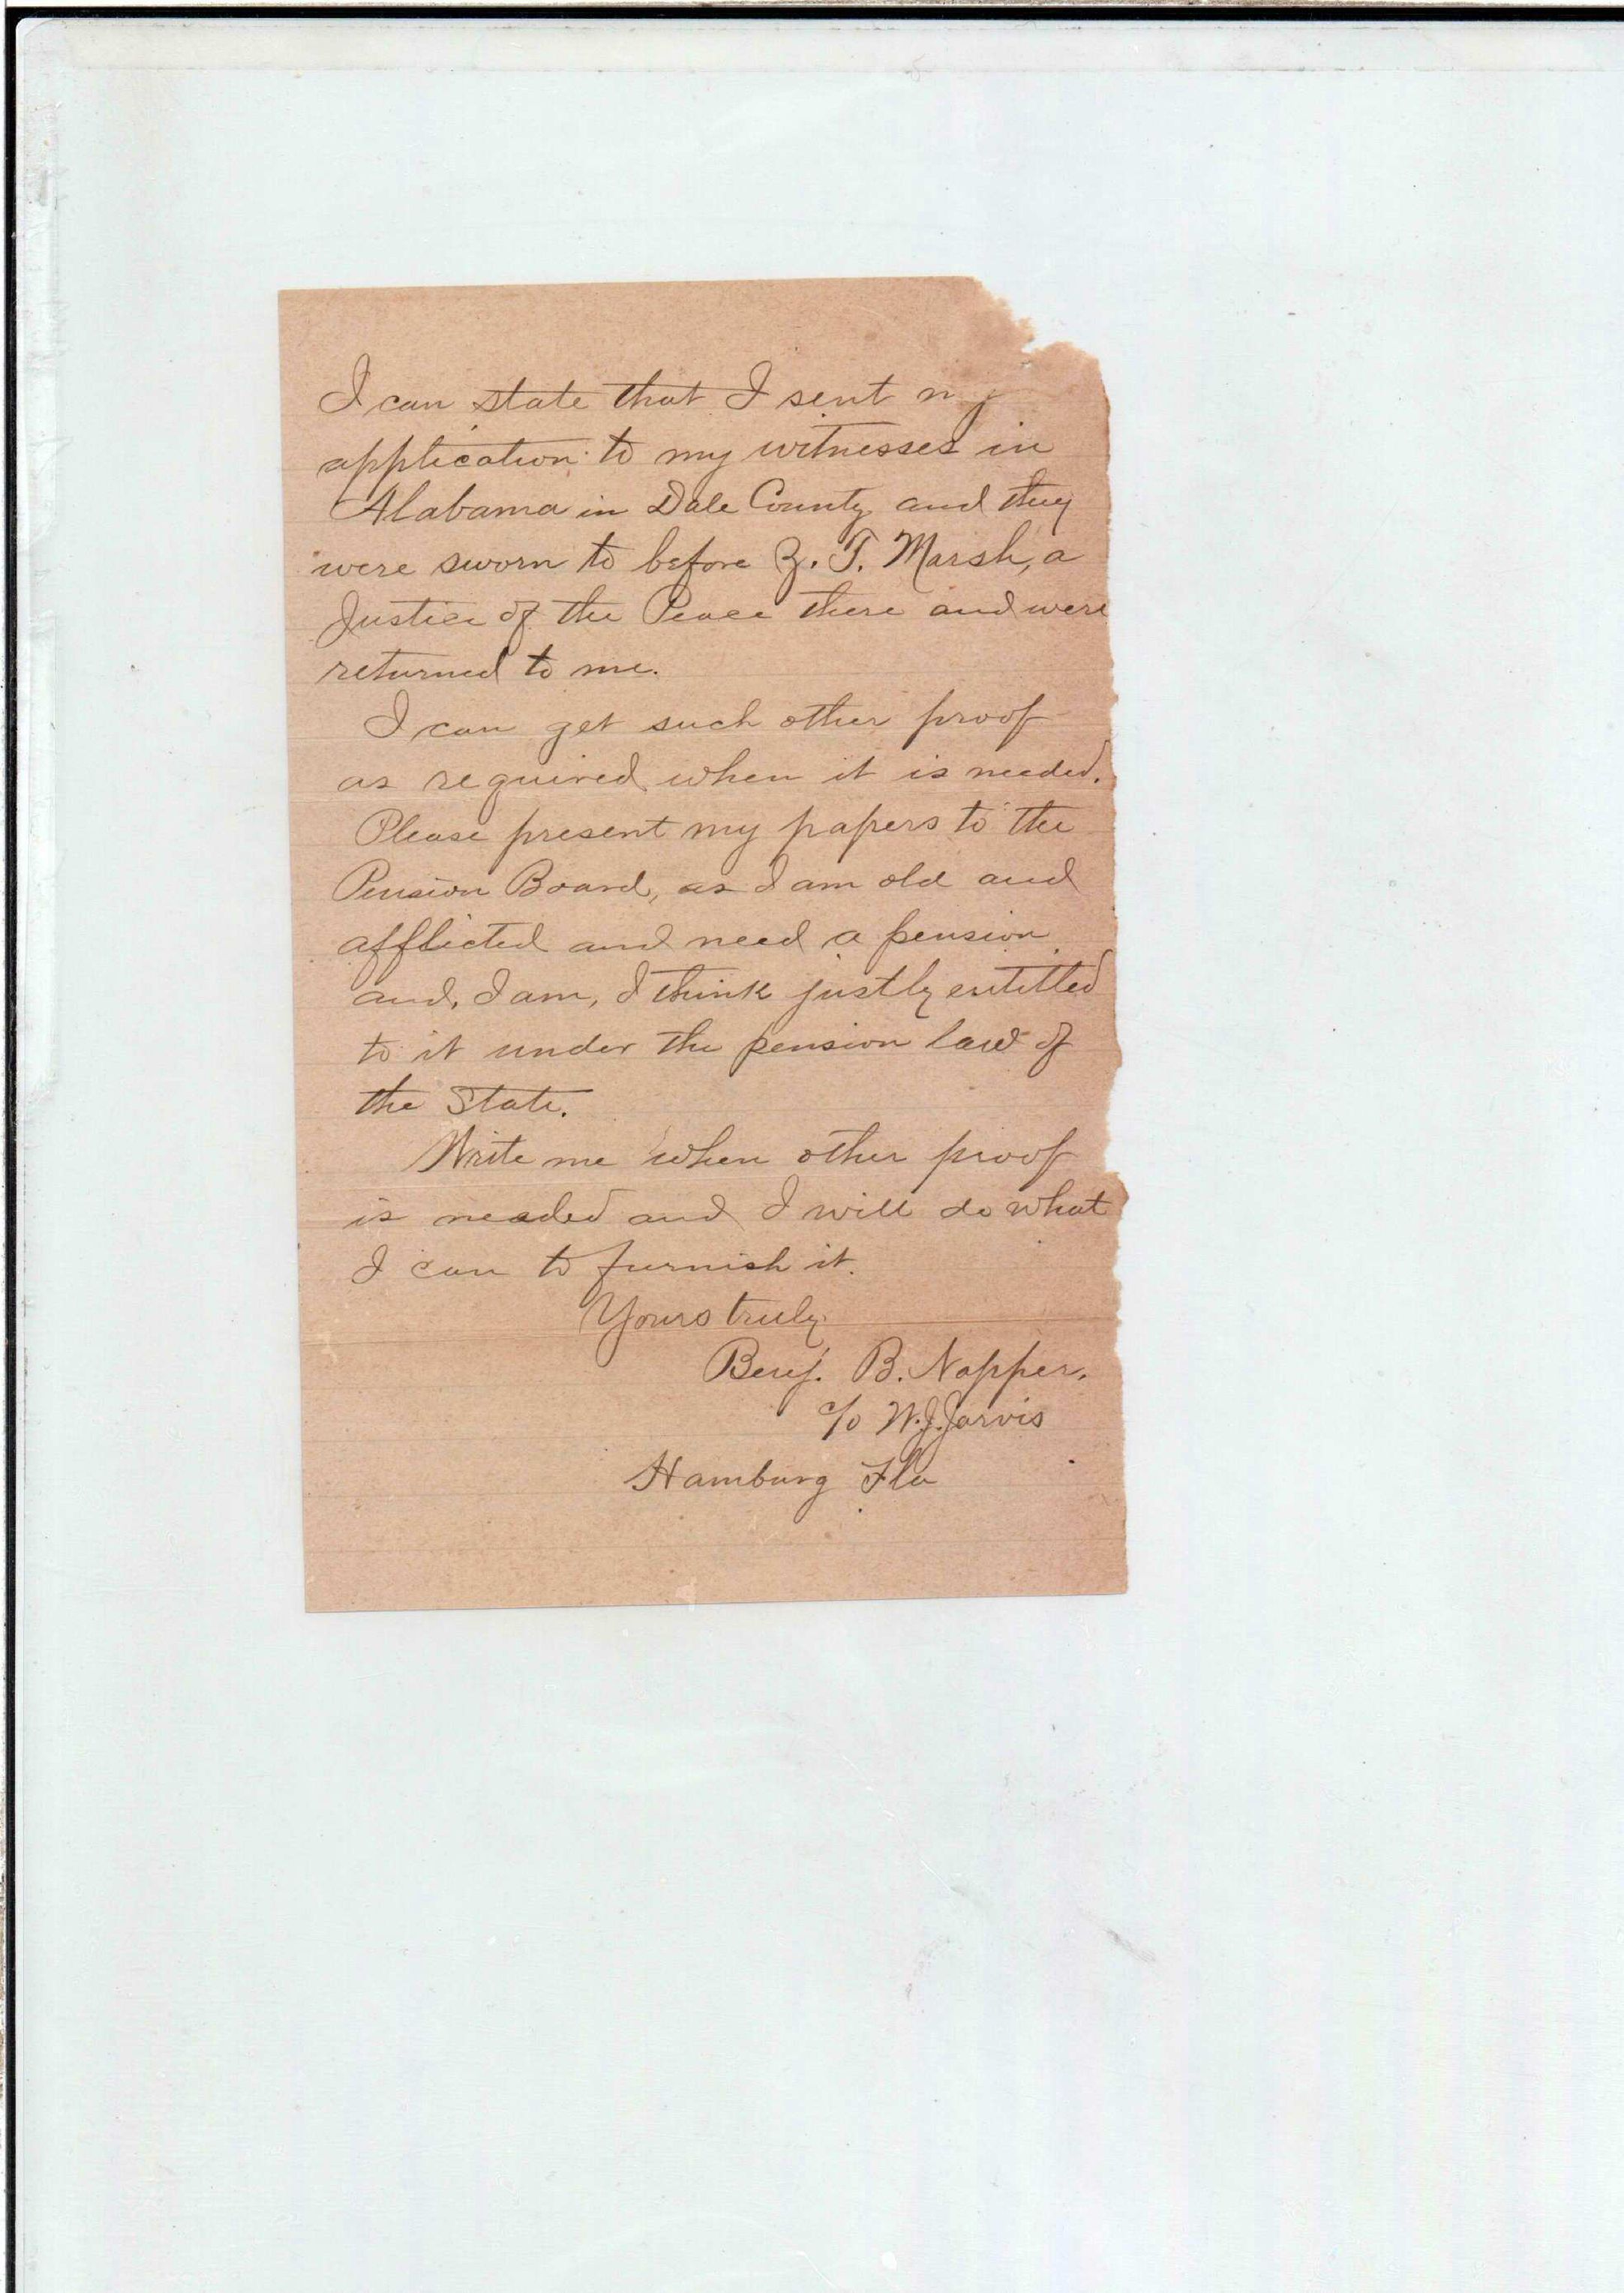 I can state that I sent my
application to my witnesses in
Alabama in Dale County and they
were sworn to before Z. T. Marsh, a
Justice of the Peace there and were
returned to me.
I can get such other proof
as required when it is needed.
Please present my papers to the
Pension Board, as I am old and
afflicted and need a pension
and, I am, I think justly entitled
to it under the pension law of
the State.
Write me when other proof
is needed and I will do what
I can to furnish it.
Yours truly
Benj. B. Napper.
c/o W. J. Jarvis
Hamburg Fla